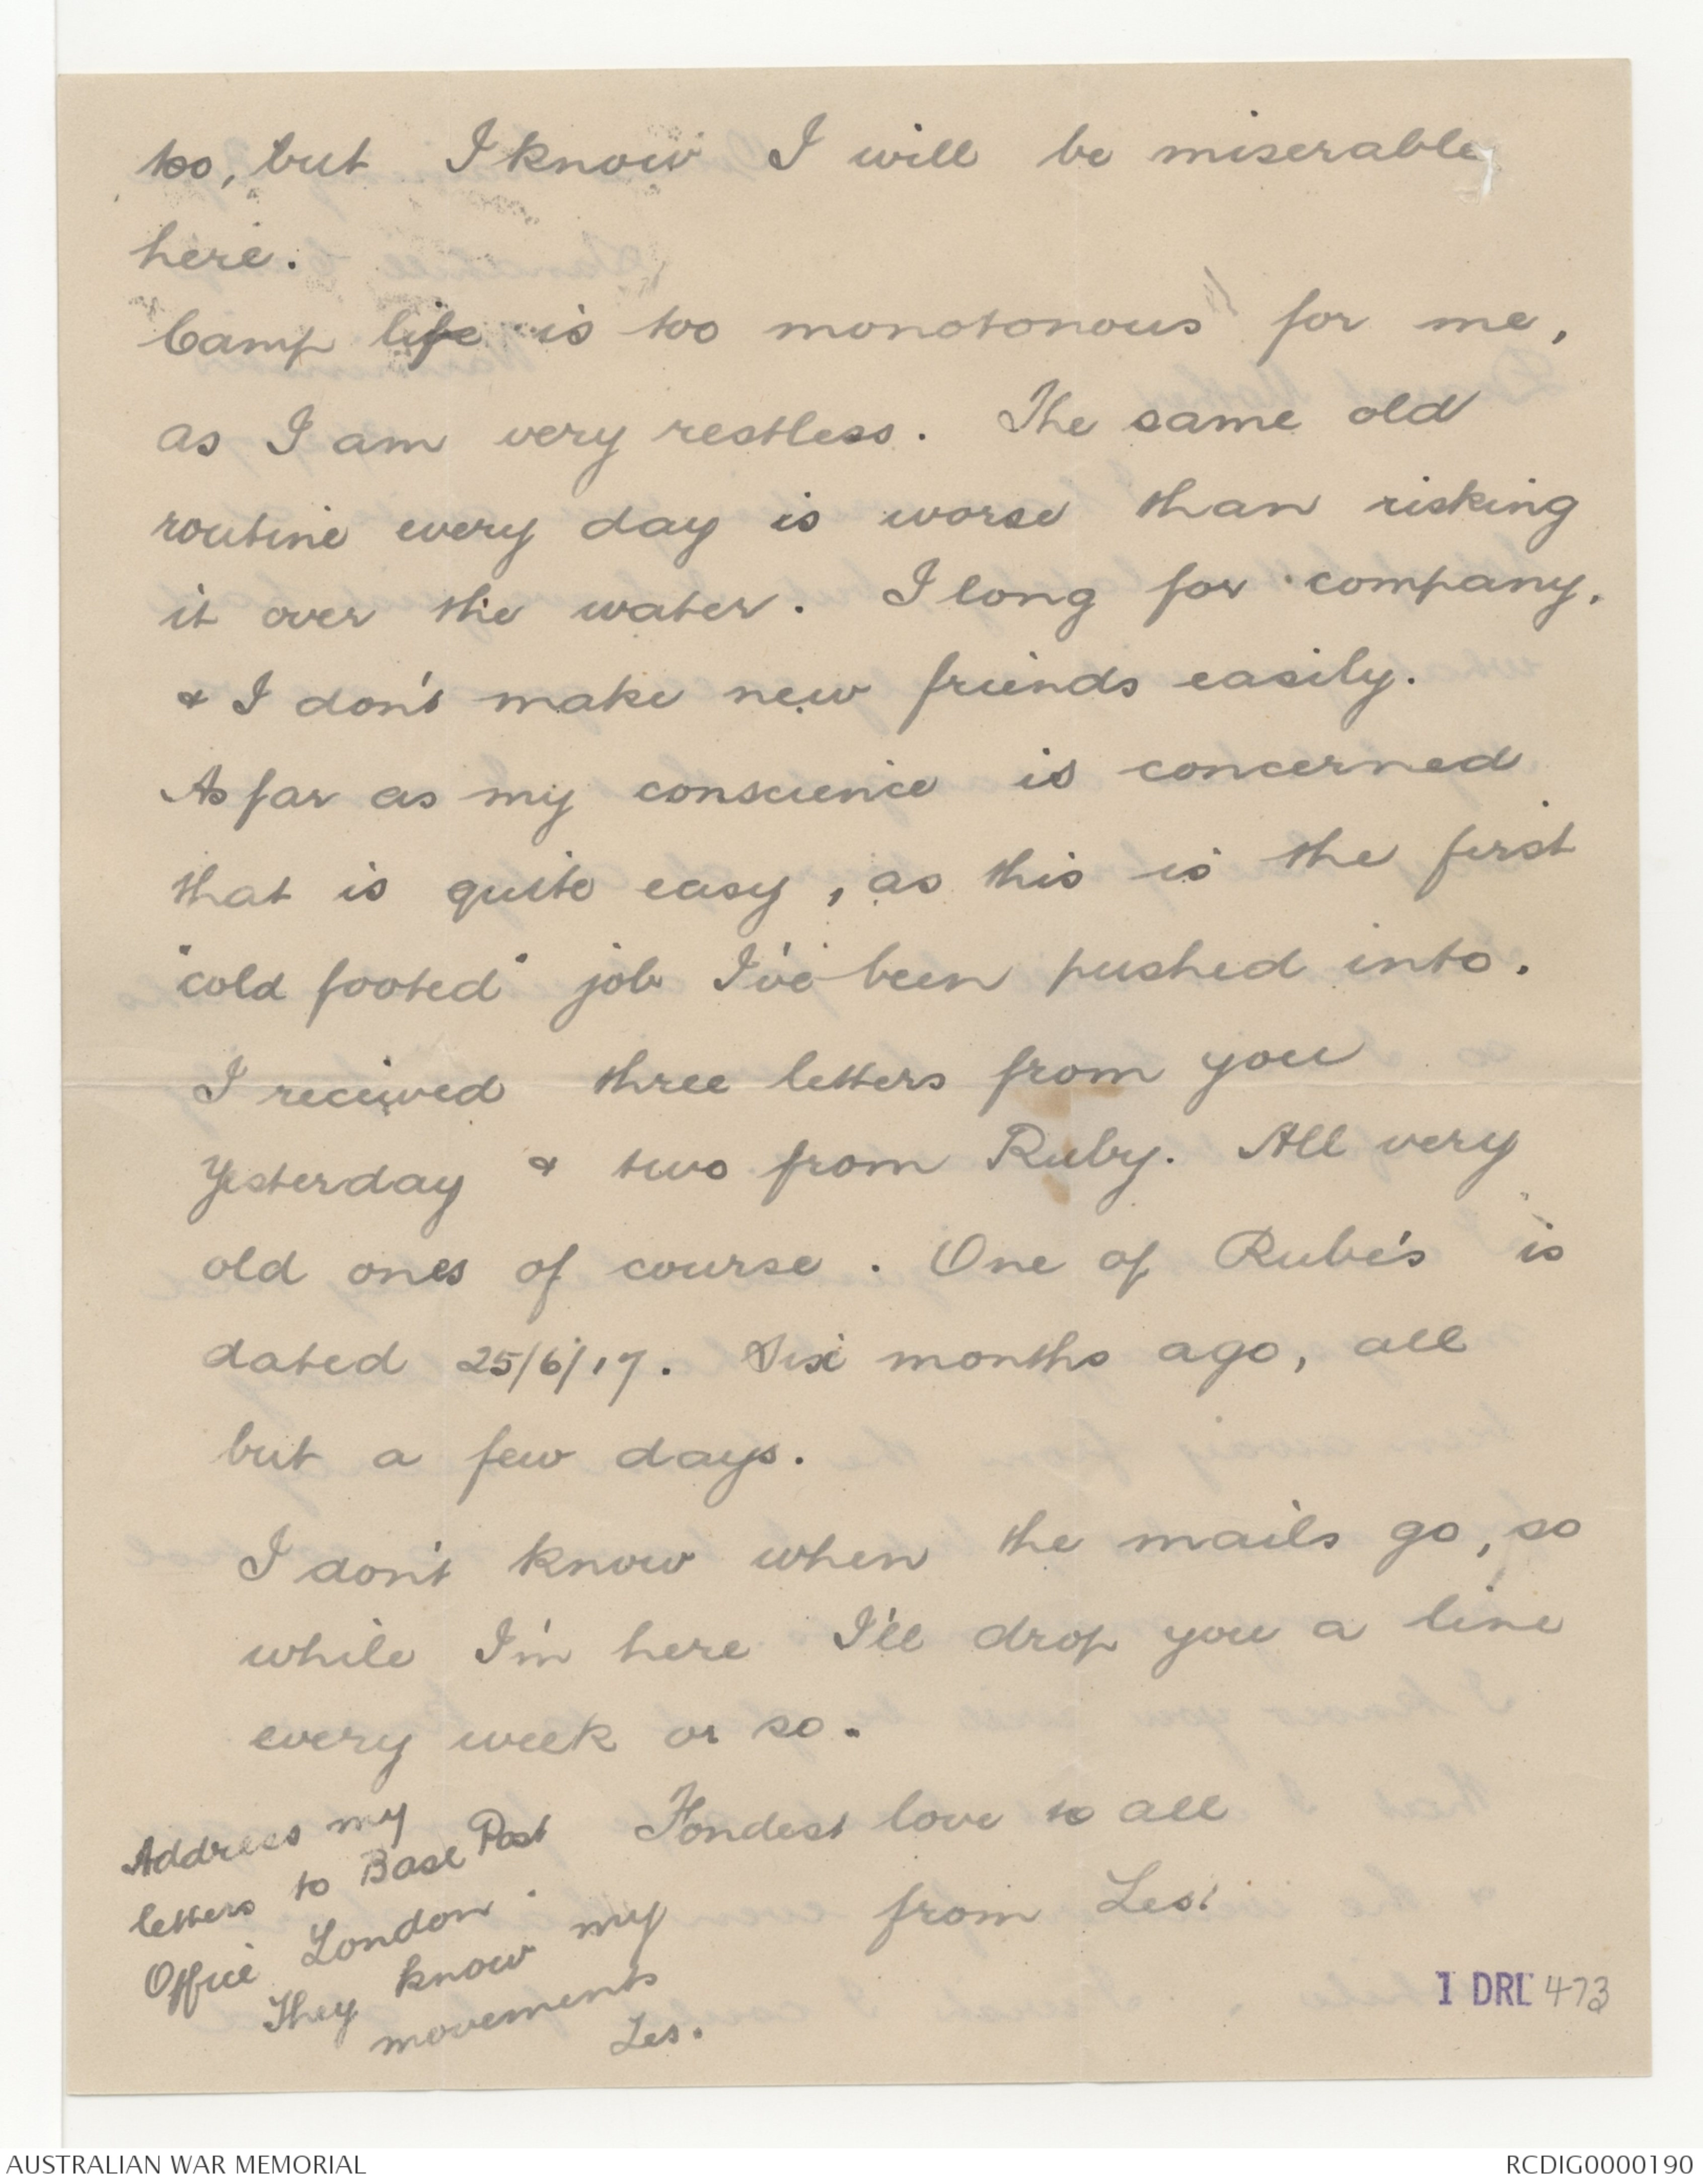 too, but I know I will be miserable
here.
Camp life is too monotonous for me,
as I am very restless. The same old
routine every day is worse than risking
it over the water. I long for company,
& I don't make new friends easily.
As far as my conscience is concerned
that is quite easy, as this is the first
"cold footed" job I've been pushed into.
I received three letters from you
yesterday & two from Ruby. All very
old ones of course. One of Rube's is
dated 25/6/17. Six months ago, all
but a few days.
I don't know when the mails go, so
while I'm here I'll drop you a line
every week or so.
Fondest love to all
from Les.
Address my
letters to Base Post
Office London.
They know my
movements
Les.
1 DRL 473
AUSTRALIAN WAR MEMORIAL
RCDIG0000190